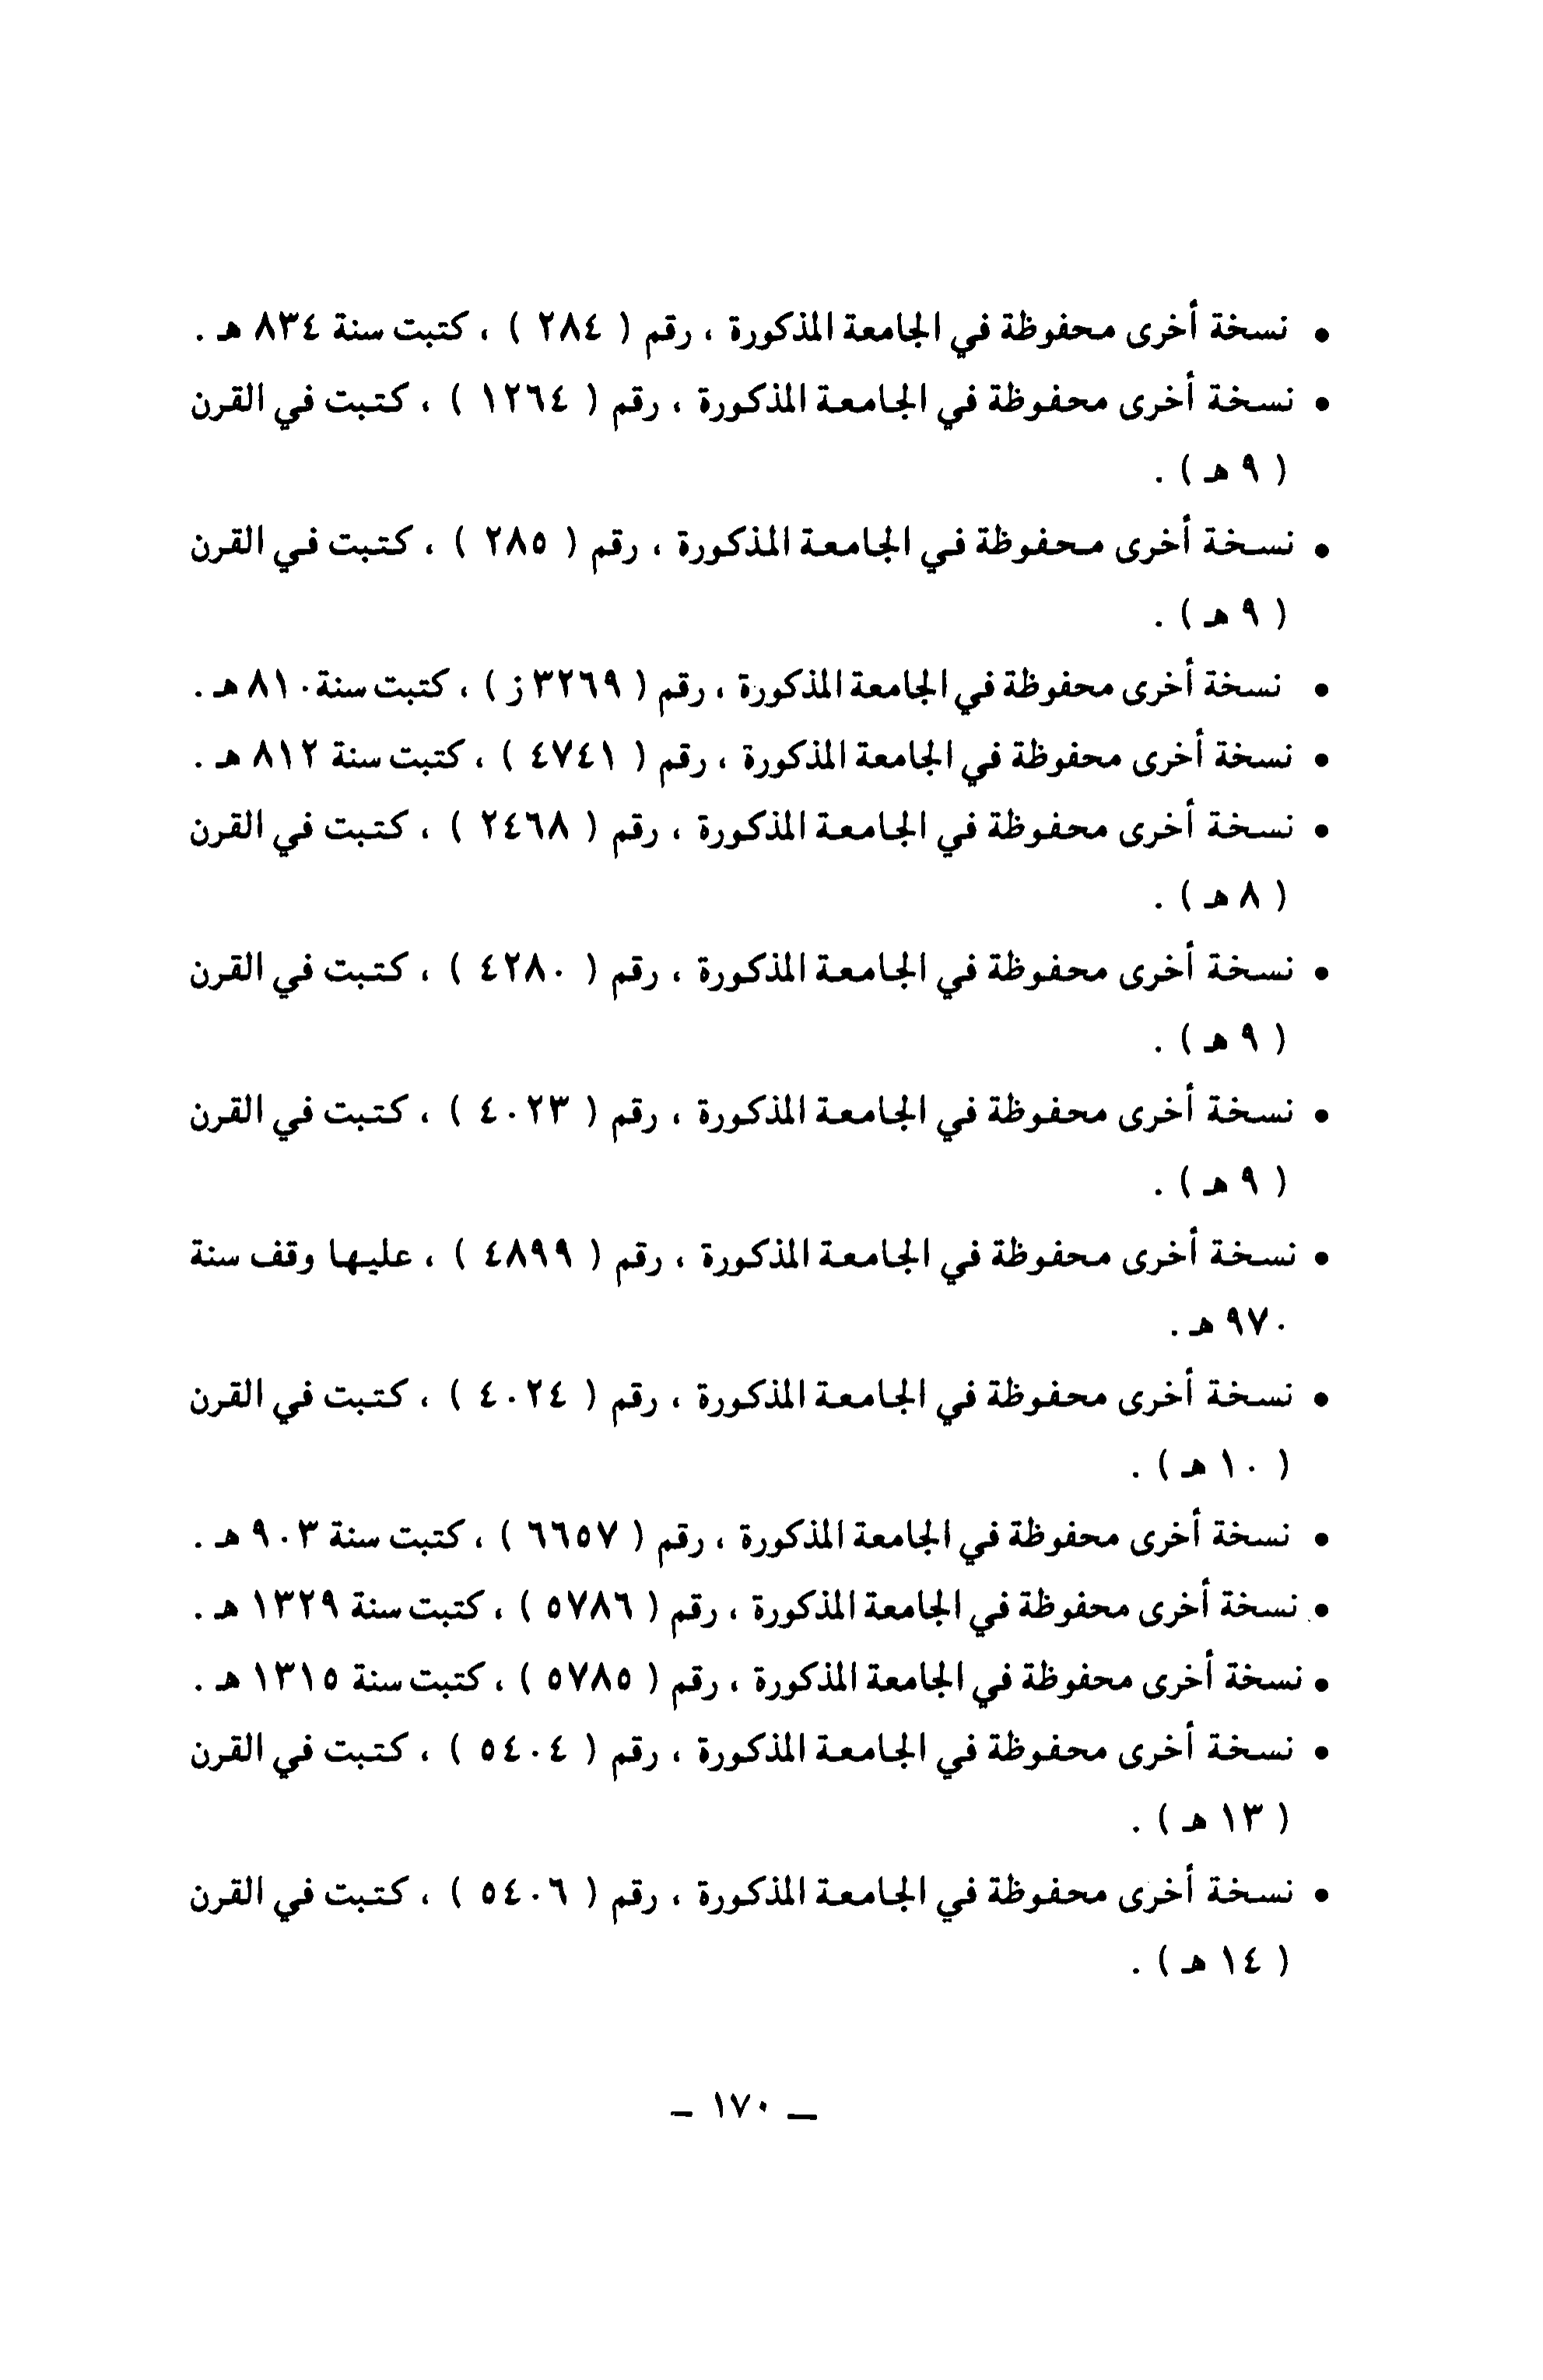 • نسخة أخرى محفوظة في الجامعة المذكورة ، رقم ( ٢٨٤ ) ، كتبت سنة ٨٣٤ هـ .
• نسخة أخرى محفوظة في الجامعة المذكورة ، رقم ( ١٢٦٤ ) ، كتبت في القرن
( ٩ هـ ) .
• نسخة أخرى محفوظة في الجامعة المذكورة ، رقم ( ٢٨٥ ) ، كتبت في القرن
( ٩ هـ ) .
• نسخة أخرى محفوظة في الجامعة المذكورة ، رقم ( ٣٢٦٩ ز ) ، كتبت سنة ٨١٠ هـ .
• نسخة أخرى محفوظة في الجامعة المذكورة ، رقم ( ٤٧٤١ ) ، كتبت سنة ٨١٢ هـ .
• نسخة أخرى محفوظة في الجامعة المذكورة ، رقم ( ٢٤٦٨ ) ، كتبت في القرن
( ٨ هـ ) .
• نسخة أخرى محفوظة في الجامعة المذكورة ، رقم ( ٤٢٨٠ ) ، كتبت في القرن
( ٩ هـ ) .
• نسخة أخرى محفوظة في الجامعة المذكورة ، رقم ( ٤٠٢٣ ) ، كتبت في القرن
( ٩ هـ ) .
• نسخة أخرى محفوظة في الجامعة المذكورة ، رقم ( ٤٨٩٩ ) ، عليها وقف سنة
٩٧٠ هـ .
• نسخة أخرى محفوظة في الجامعة المذكورة ، رقم ( ٤٠٢٤ ) ، كتبت في القرن
( ١٠ هـ ) .
• نسخة أخرى محفوظة في الجامعة المذكورة ، رقم ( ٦٦٥٧ ) ، كتبت سنة ٩٠٣ هـ .
• نسخة أخرى محفوظة في الجامعة المذكورة ، رقم ( ٥٧٨٦ ) ، كتبت سنة ١٣٢٩ هـ .
• نسخة أخرى محفوظة في الجامعة المذكورة ، رقم ( ٥٧٨٥ ) ، كتبت سنة ١٣١٥ هـ .
• نسخة أخرى محفوظة في الجامعة المذكورة ، رقم ( ٥٤٠٤ ) ، كتبت في القرن
( ١٣ هـ ) .
• نسخة أخرى محفوظة في الجامعة المذكورة ، رقم ( ٥٤٠٦ ) ، كتبت في القرن
( ١٤ هـ ) .
ــ ١٧٠ ــ